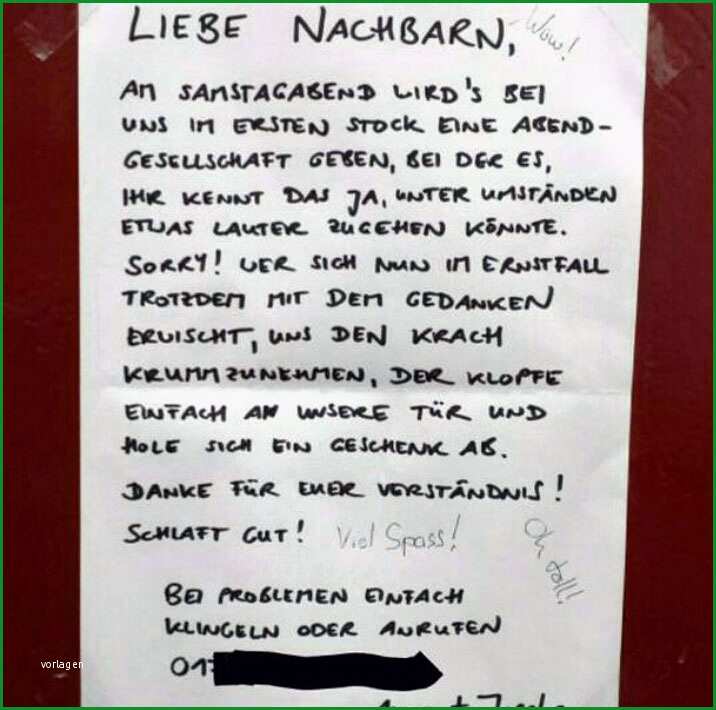 LIEBE NACHBARN,
Wow!
AM SAMSTAGABEND WIRD'S BEI
UNS IM ERSTEN STOCK EINE ABEND-
GESELLSCHAFT GEBEN, BEI DER ES,
IHR KENNT DAS JA, UNTER UMSTÄNDEN
ETWAS LAUTER ZUGEHEN KÖNNTE.
SORRY! WER SICH NUN IM ERNSTFALL
TROTZDEM MIT DEM GEDANKEN
ERWISCHT, UNS DEN KRACH
KRUMMZUNEHMEN, DER KLOPFE
EINFACH AN UNSERE TÜR UND
HOLE SICH EIN GESCHENK AB.
DANKE FÜR EUER VERSTÄNDNIS!
SCHLAFT GUT! Viel Spass!
Oh toll!
BEI PROBLEMEN EINFACH
KLINGELN ODER ANRUFEN
017
vorlagen